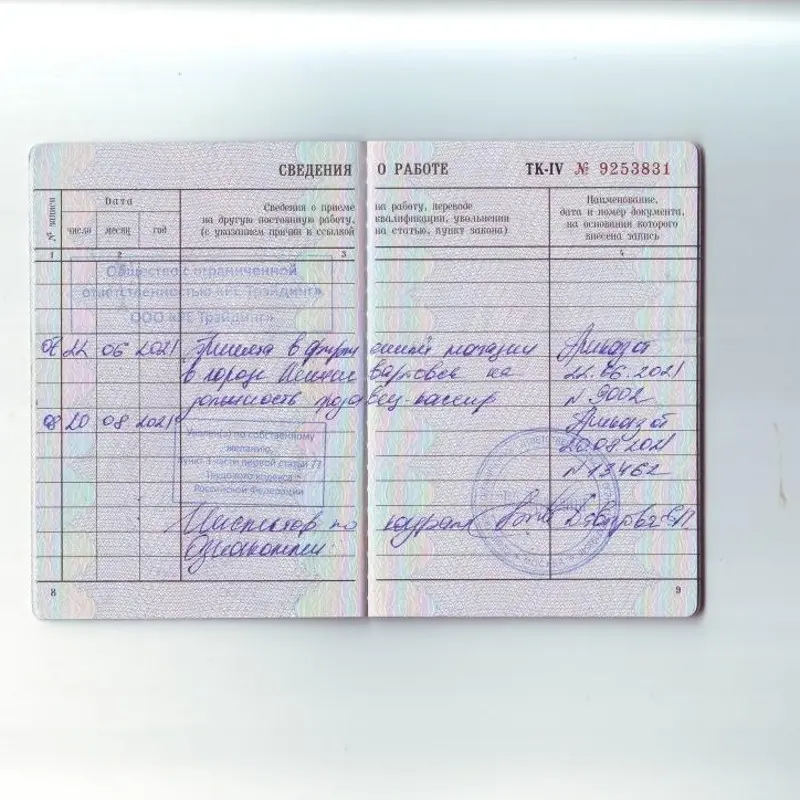 СВЕДЕНИЯ О РАБОТЕ
ТК-IV № 9253831
№ записи
Дата
число месяц год
Сведения о приеме на работу, переводе
на другую постоянную работу, квалификации, увольнении
(с указанием причин и ссылкой на статью, пункт закона)
Наименование,
дата и номер документа,
на основании которого
внесена запись
1 2 3 4
Общество с ограниченной
ответственностью «РЕ Трэйдинг»
ООО «РЕ Трэйдинг»
22 06 2021 Принята в магазин Приказ от
в городе на 22.06.2021
должность продавец-кассир № 9002
08 20 08 2021 Приказ от
Уволен(а) по собственному
желанию,
пункт 3 части первой статьи 77
Трудового кодекса
Российской Федерации
20.08 2021
№ 13462
Инспектор по кадрам
Ознакомлен
8
9